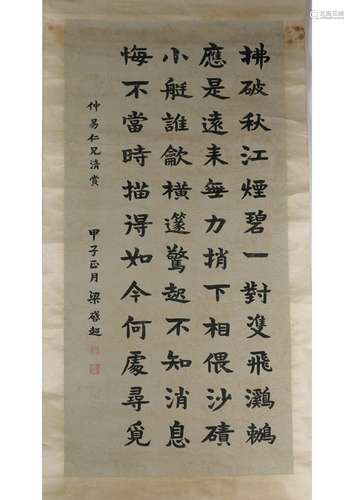 拂破秋江煙碧一對雙飛鸂鶒
應是遠来無力捎下相偎沙磧
小艇誰龡橫篴驚起不知消息
悔不當時描得如今何處尋覓
仲易仁兄清賞
甲子正月 梁啓超